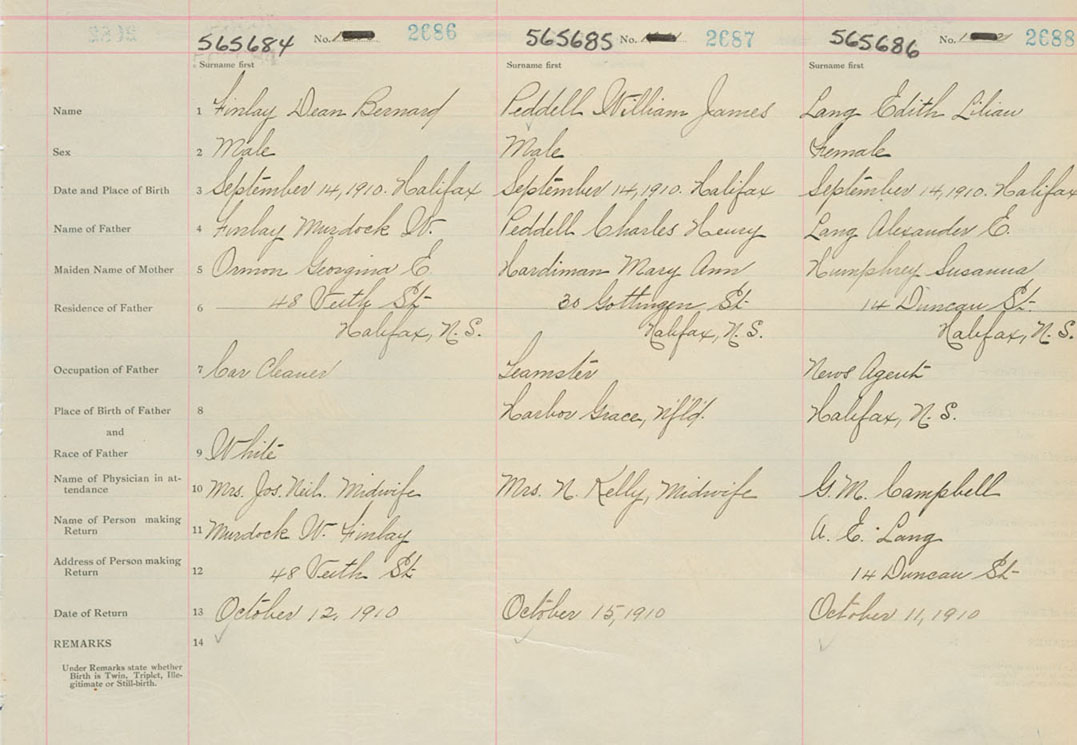 565684 No. 2686 565685 No. 2687 565686 No. 2688
Surname first Surname first Surname first
Name 1 Finlay Dean Bernard Peddell William James Lang Edith Lilian
Sex 2 Male Male Female
Date and Place of Birth 3 September 14, 1910. Halifax September 14, 1910. Halifax September 14, 1910. Halifax
Name of Father 4 Finlay Murdock W. Peddell Charles Henry Lang Alexander E.
Maiden Name of Mother 5 Ormon Georgina E. Hardiman Mary Ann Humphrey Susanna
Residence of Father 6 48 Veith St 30 Gottingen St 14 Duncan St.
Halifax, N.S. Halifax, N.S. Halifax, N.S.
Occupation of Father 7 Car Cleaner Teamster News Agent
Place of Birth of Father 8 Harbor Grace, Nfld. Halifax, N.S.
and
Race of Father 9 White
Name of Physician in at-
tendance 10 Mrs. Jos. Neil. Midwife Mrs. N. Kelly, Midwife G. M. Campbell
Name of Person making
Return 11 Murdock W. Finlay A. E. Lang
Address of Person making
Return 12 48 Veith St 14 Duncan St
Date of Return 13 October 12, 1910 October 15, 1910 October 11, 1910
REMARKS 14
Under Remarks state whether
Birth is Twin, Triplet, Ille-
gitimate or Still-birth.